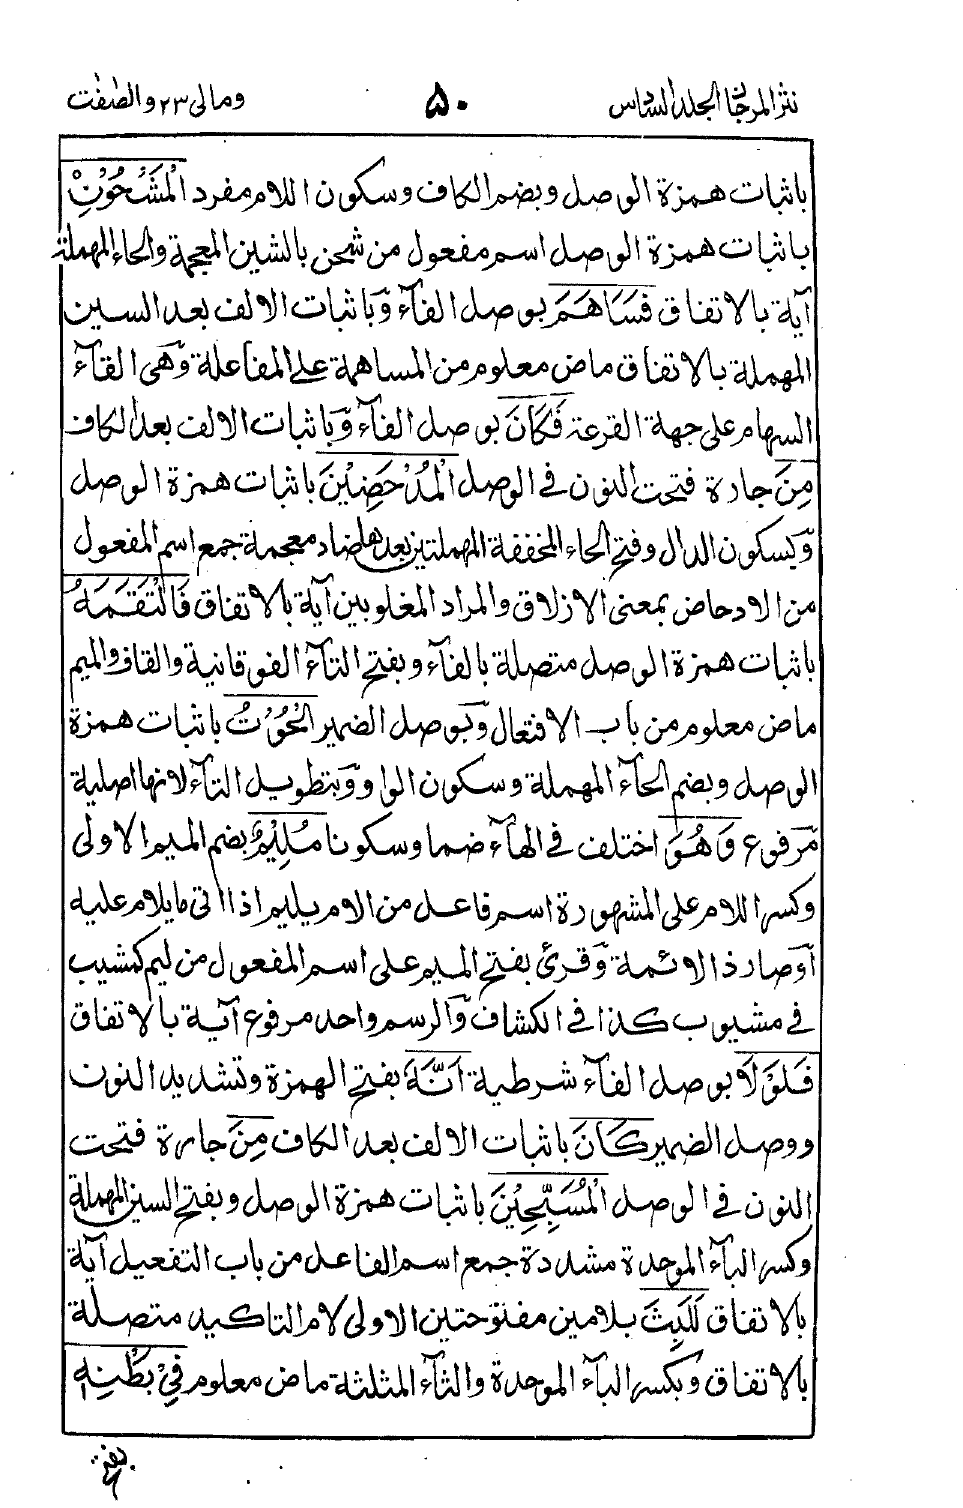 نثر المرجان الجلد السادس ۵۰ ومالى ٢٣ والصّٰفّٰت
باثبات همزة الوصل وبضم الكاف وسكون اللام مفرد الْمَشْحُوْنِ
باثبات همزة الوصل اسم مفعول من شحن بالشين المعجمة والحاء المهملة
آية بالاتفاق فَسَاهَمَ بوصل الفآء وباثبات الالف بعد السين
المهملة بالاتفاق ماض معلوم من المساهمة على المفاعلة وهى القآء
السهام على جهة القرعة فَكَانَ بوصل الفآء وباثبات الالف بعد الكاف
مِنَ جارة فتحت النون فى الوصل الْمُدْحَضِيْنَ باثبات همزة الوصل
وبسكون الدال وفتح الحاء المخففة المهملتين بعدها ضاد معجمة جمع اسم المفعول
من الادحاض بمعنى الازلاق والمراد المغلوبين آية بالاتفاق فَالْتَقَمَهُ
باثبات همزة الوصل متصلة بالفآء وبفتح التآء الفوقانية والقاف والميم
ماض معلوم من باب الافتعال وبوصل الضمير الْحُوْتُ باثبات همزة
الوصل وبضم الحآء المهملة وسكون الواو وبتطويل التآء لانها اصلية
مرفوع وَهُوَ اختلف فى الهآء ضما وسكونا مُلِيْمٌ بضم الميم الاولى
وكسر اللام على المشهورة اسم فاعل من الام يليم اذا اتى ما يلام عليه
او صار ذا لائمة وقرئ بفتح الميم على اسم المفعول من ليم كمشيب
فى مشيوب كذا فى الكشاف والرسم واحد مرفوع آية بالاتفاق
فَلَوْلَا بوصل الفآء شرطية اَنَّهُ بفتح الهمزة وتشديد النون
ووصل الضمير كَانَ باثبات الالف بعد الكاف مِنَ جارة فتحت
النون فى الوصل الْمُسَبِّحِيْنَ باثبات همزة الوصل وبفتح السين المهملة
وكسر البآء الموحدة مشددة جمع اسم الفاعل من باب التفعيل آية
بالاتفاق لَلَبِثَ بلامين مفتوحتين الاولى لام التاكيد متصلة
بالاتفاق وبكسر البآء الموحدة والثآء المثلثة ماض معلوم فِيْ بَطْنِهٖ